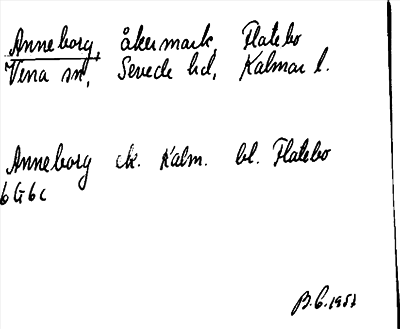 Anneborg, åkermark, Flatebo
Vena sn, Sevede hd, Kalmar l.
Anneborg ek. Kalm. bl. Flatebo
6G6c
B.G. 1951